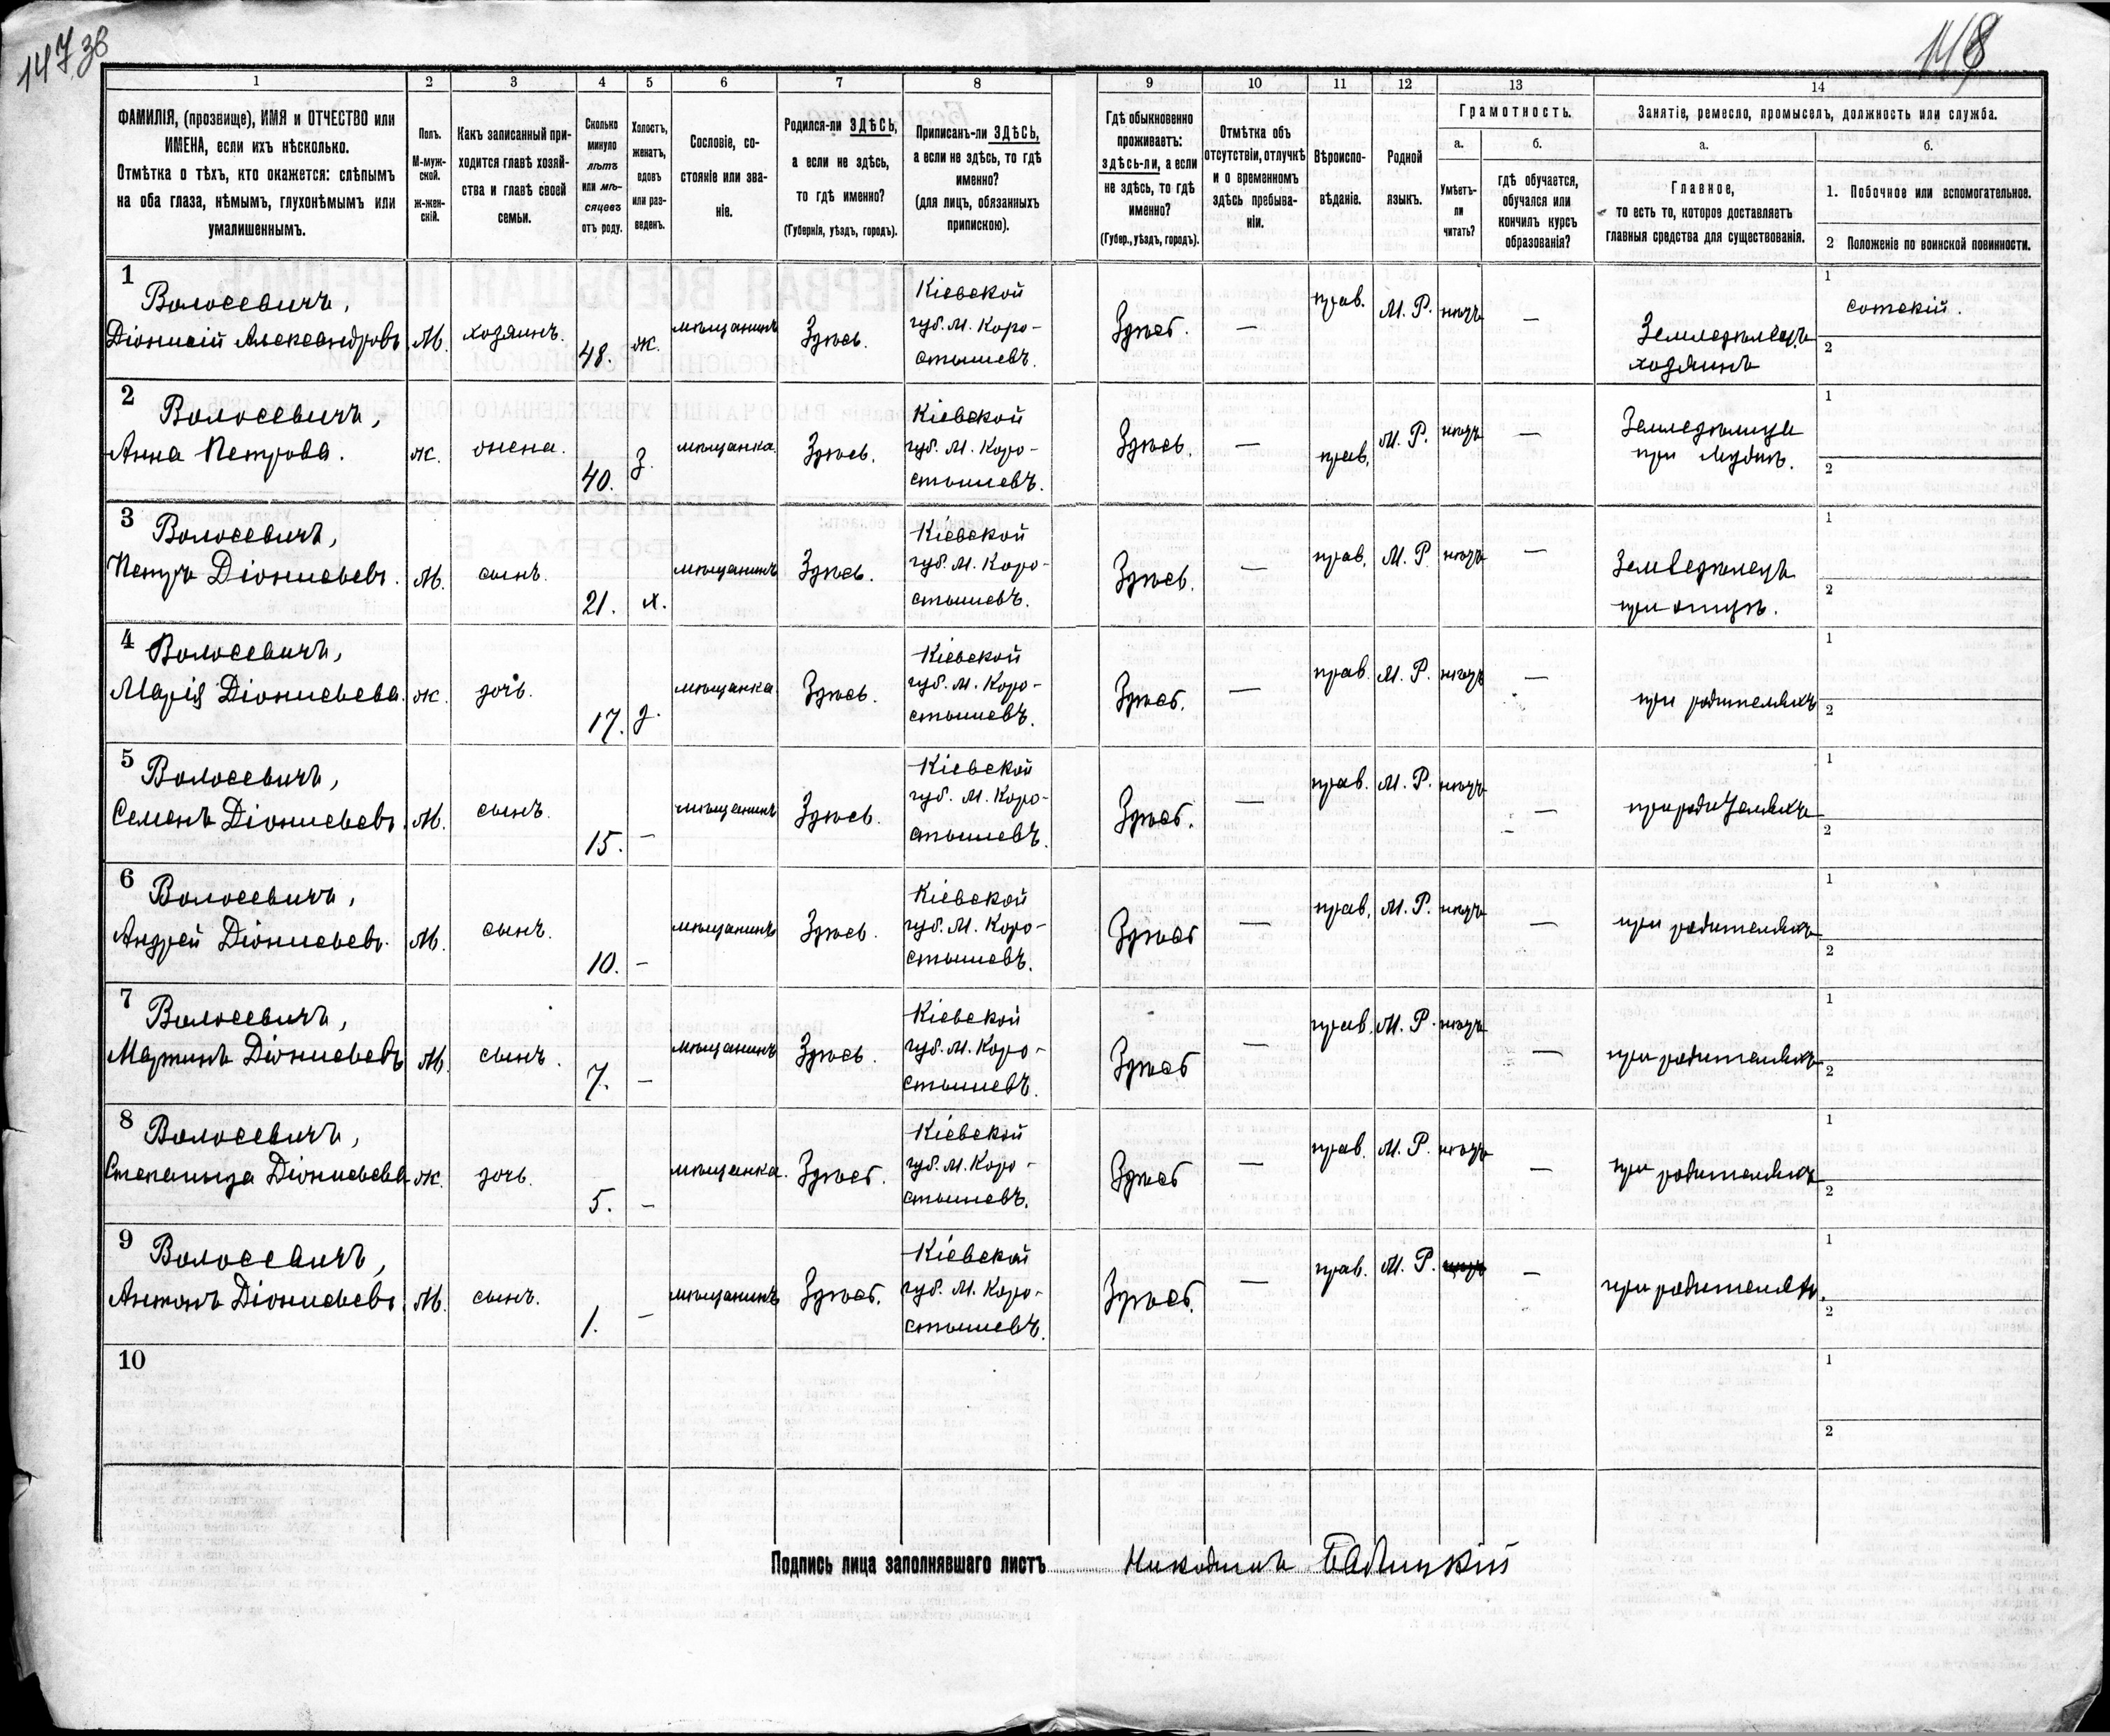 147 зв
148
1
2
3
4
5
6
7
8
9
10
11
12
13
14
ФАМИЛІЯ, (прозвище), ИМЯ и ОТЧЕСТВО или
ИМЕНА, если ихъ нѣсколько.
Отмѣтка о тѣхъ, кто окажется: слѣпымъ
на оба глаза, нѣмымъ, глухонѣмымъ или
умалишеннымъ.
Полъ.
М-муж-
ской.
Ж-жен-
скій.
Какъ записанный при-
ходится главѣ хозяй-
ства и главѣ своей
семьи.
Сколько
минуло
лѣтъ
или мѣ-
сяцевъ
отъ роду.
Холостъ,
женатъ,
вдовъ
или раз-
веденъ.
Сословіе, со-
стояніе или зва-
ніе.
Родился-ли ЗДѢСЬ,
а если не здѣсь,
то гдѣ именно?
(Губернія, уѣздъ, городъ).
Приписанъ-ли ЗДѢСЬ,
а если не здѣсь, то гдѣ
именно?
(для лицъ, обязанныхъ
припискою).
Гдѣ обыкновенно
проживаетъ:
здѣсь-ли, а если
не здѣсь, то гдѣ
именно?
(Губер., уѣздъ, городъ).
Отмѣтка объ
отсутствіи, отлучкѣ
и о временномъ
здѣсь пребыва-
ніи.
Вѣроиспо-
вѣданіе.
Родной
языкъ.
Грамотность.
а.
Умѣетъ-
ли
читать?
б.
гдѣ обучается,
обучался или
кончилъ курсъ
образованія?
Занятіе, ремесло, промыселъ, должность или служба.
а.
Главное,
то есть то, которое доставляетъ
главныя средства для существованія.
б.
1. Побочное или вспомогательное.
2 Положеніе по воинской повинности.
1
Волосевичъ,
Діонисій Александровъ
М.
хозяинъ.
48.
ж.
мѣщанинъ
Здѣсь.
Кіевской
губ. М. Коро-
стышевъ.
Здѣсь.
—
прав.
М. Р.
нѣтъ
—
Земледѣлецъ
хозяинъ
1
сотскій.
2
2
Волосевичъ,
Анна Петрова.
ж.
жена.
40.
З.
мѣщанка
Здѣсь.
Кіевской
губ. М. Коро-
стышевъ.
Здѣсь.
—
прав.
М. Р.
нѣтъ
—
Земледѣлица
при мужѣ.
1
2
3
Волосевичъ,
Петръ Діонисьевъ.
М.
сынъ.
21.
х.
мѣщанинъ
Здѣсь.
Кіевской
губ. М. Коро-
стышевъ.
Здѣсь.
—
прав.
М. Р.
нѣтъ
—
Земледѣлецъ
при отцѣ.
1
2
4
Волосевичъ,
Марія Діонисьева.
ж.
дочь.
17.
д.
мѣщанка
Здѣсь.
Кіевской
губ. М. Коро-
стышевъ.
Здѣсь.
—
прав.
М. Р.
нѣтъ
—
при родителяхъ
1
2
5
Волосевичъ,
Семенъ Діонисьевъ.
М.
сынъ.
15.
–
мѣщанинъ
Здѣсь.
Кіевской
губ. М. Коро-
стышевъ.
Здѣсь.
—
прав.
М. Р.
нѣтъ
—
при родителяхъ
1
2
6
Волосевичъ,
Андрей Діонисьевъ.
М.
сынъ.
10.
–
мѣщанинъ
Здѣсь.
Кіевской
губ. М. Коро-
стышевъ.
Здѣсь
—
прав.
М. Р.
нѣтъ
—
при родителяхъ
1
2
7
Волосевичъ,
Мартинъ Діонисьевъ
М.
сынъ.
7.
–
мѣщанинъ
Здѣсь.
Кіевской
губ. М. Коро-
стышевъ.
Здѣсь
—
прав.
М. Р.
нѣтъ
—
при родителяхъ
1
2
8
Волосевичъ,
Степанида Діонисьева
ж.
дочь.
5.
–
мѣщанка.
Здѣсь.
Кіевской
губ. М. Коро-
стышевъ.
Здѣсь
—
прав.
М. Р.
нѣтъ
—
при родителяхъ
1
2
9
Волосевичъ,
Антонъ Діонисьевъ.
М.
сынъ.
1.
–
мѣщанинъ
Здѣсь.
Кіевской
губ. М. Коро-
стышевъ.
Здѣсь.
—
прав.
М. Р.
—
при родителяхъ.
1
2
10
1
2
Подпись лица заполнявшаго листъ Никодимъ